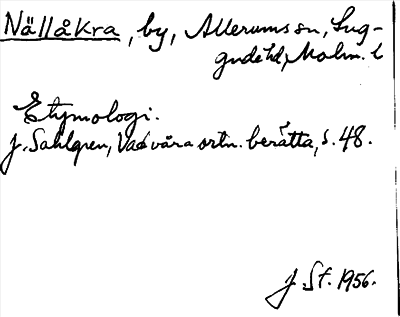 Nällåkra, by, Allerums sn, Lug-
gude hd, Malm. l
Etymologi.
J. Sahlgren, Vad våra ortn. berätta, s. 48.
J. Sf. 1956.